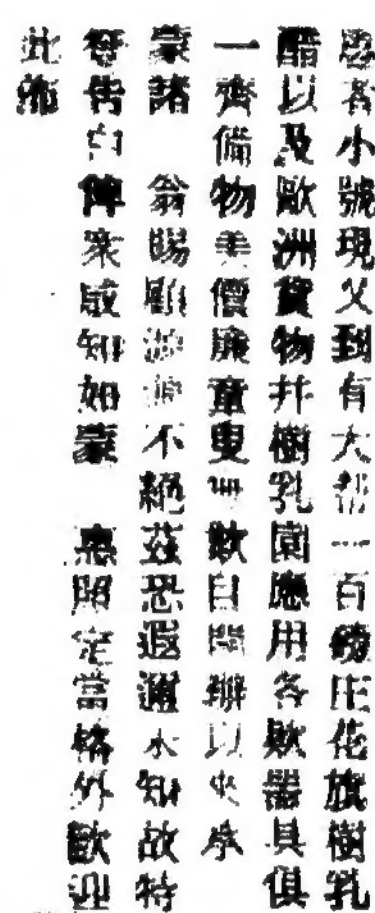 啓者小號現又到有大帮一百磅庄花旗樹乳
醋以及歐洲貨物幷樹乳園應用各欵器具俱
一齊備物美價廉童叟無欺自開辦以來承
蒙諸 翁賜顧源源不絕茲恐遐邇未知故特
登告白俾衆咸知如蒙 惠照定當格外歡迎
此佈